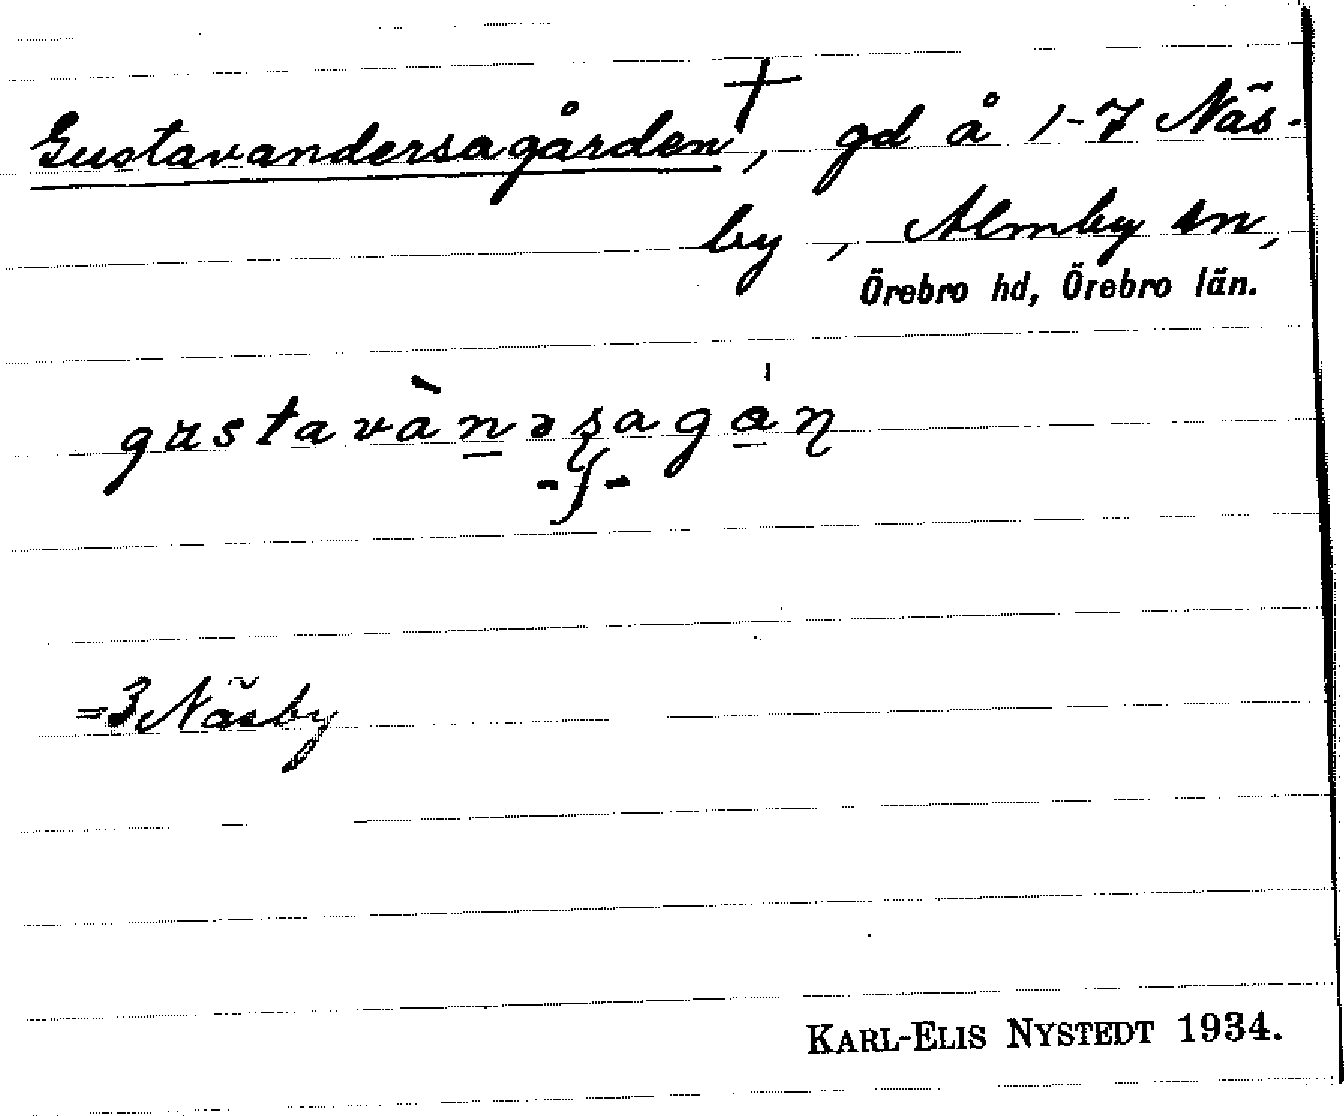 Gustavandersagården†, gd å 1-7 Näs-
by, Almby sn,
Örebro hd, Örebro län.
gustavànəʂagɑ́ɳ
-ʃ-
=3 Näsby
KARL-ELIS NYSTEDT 1934.